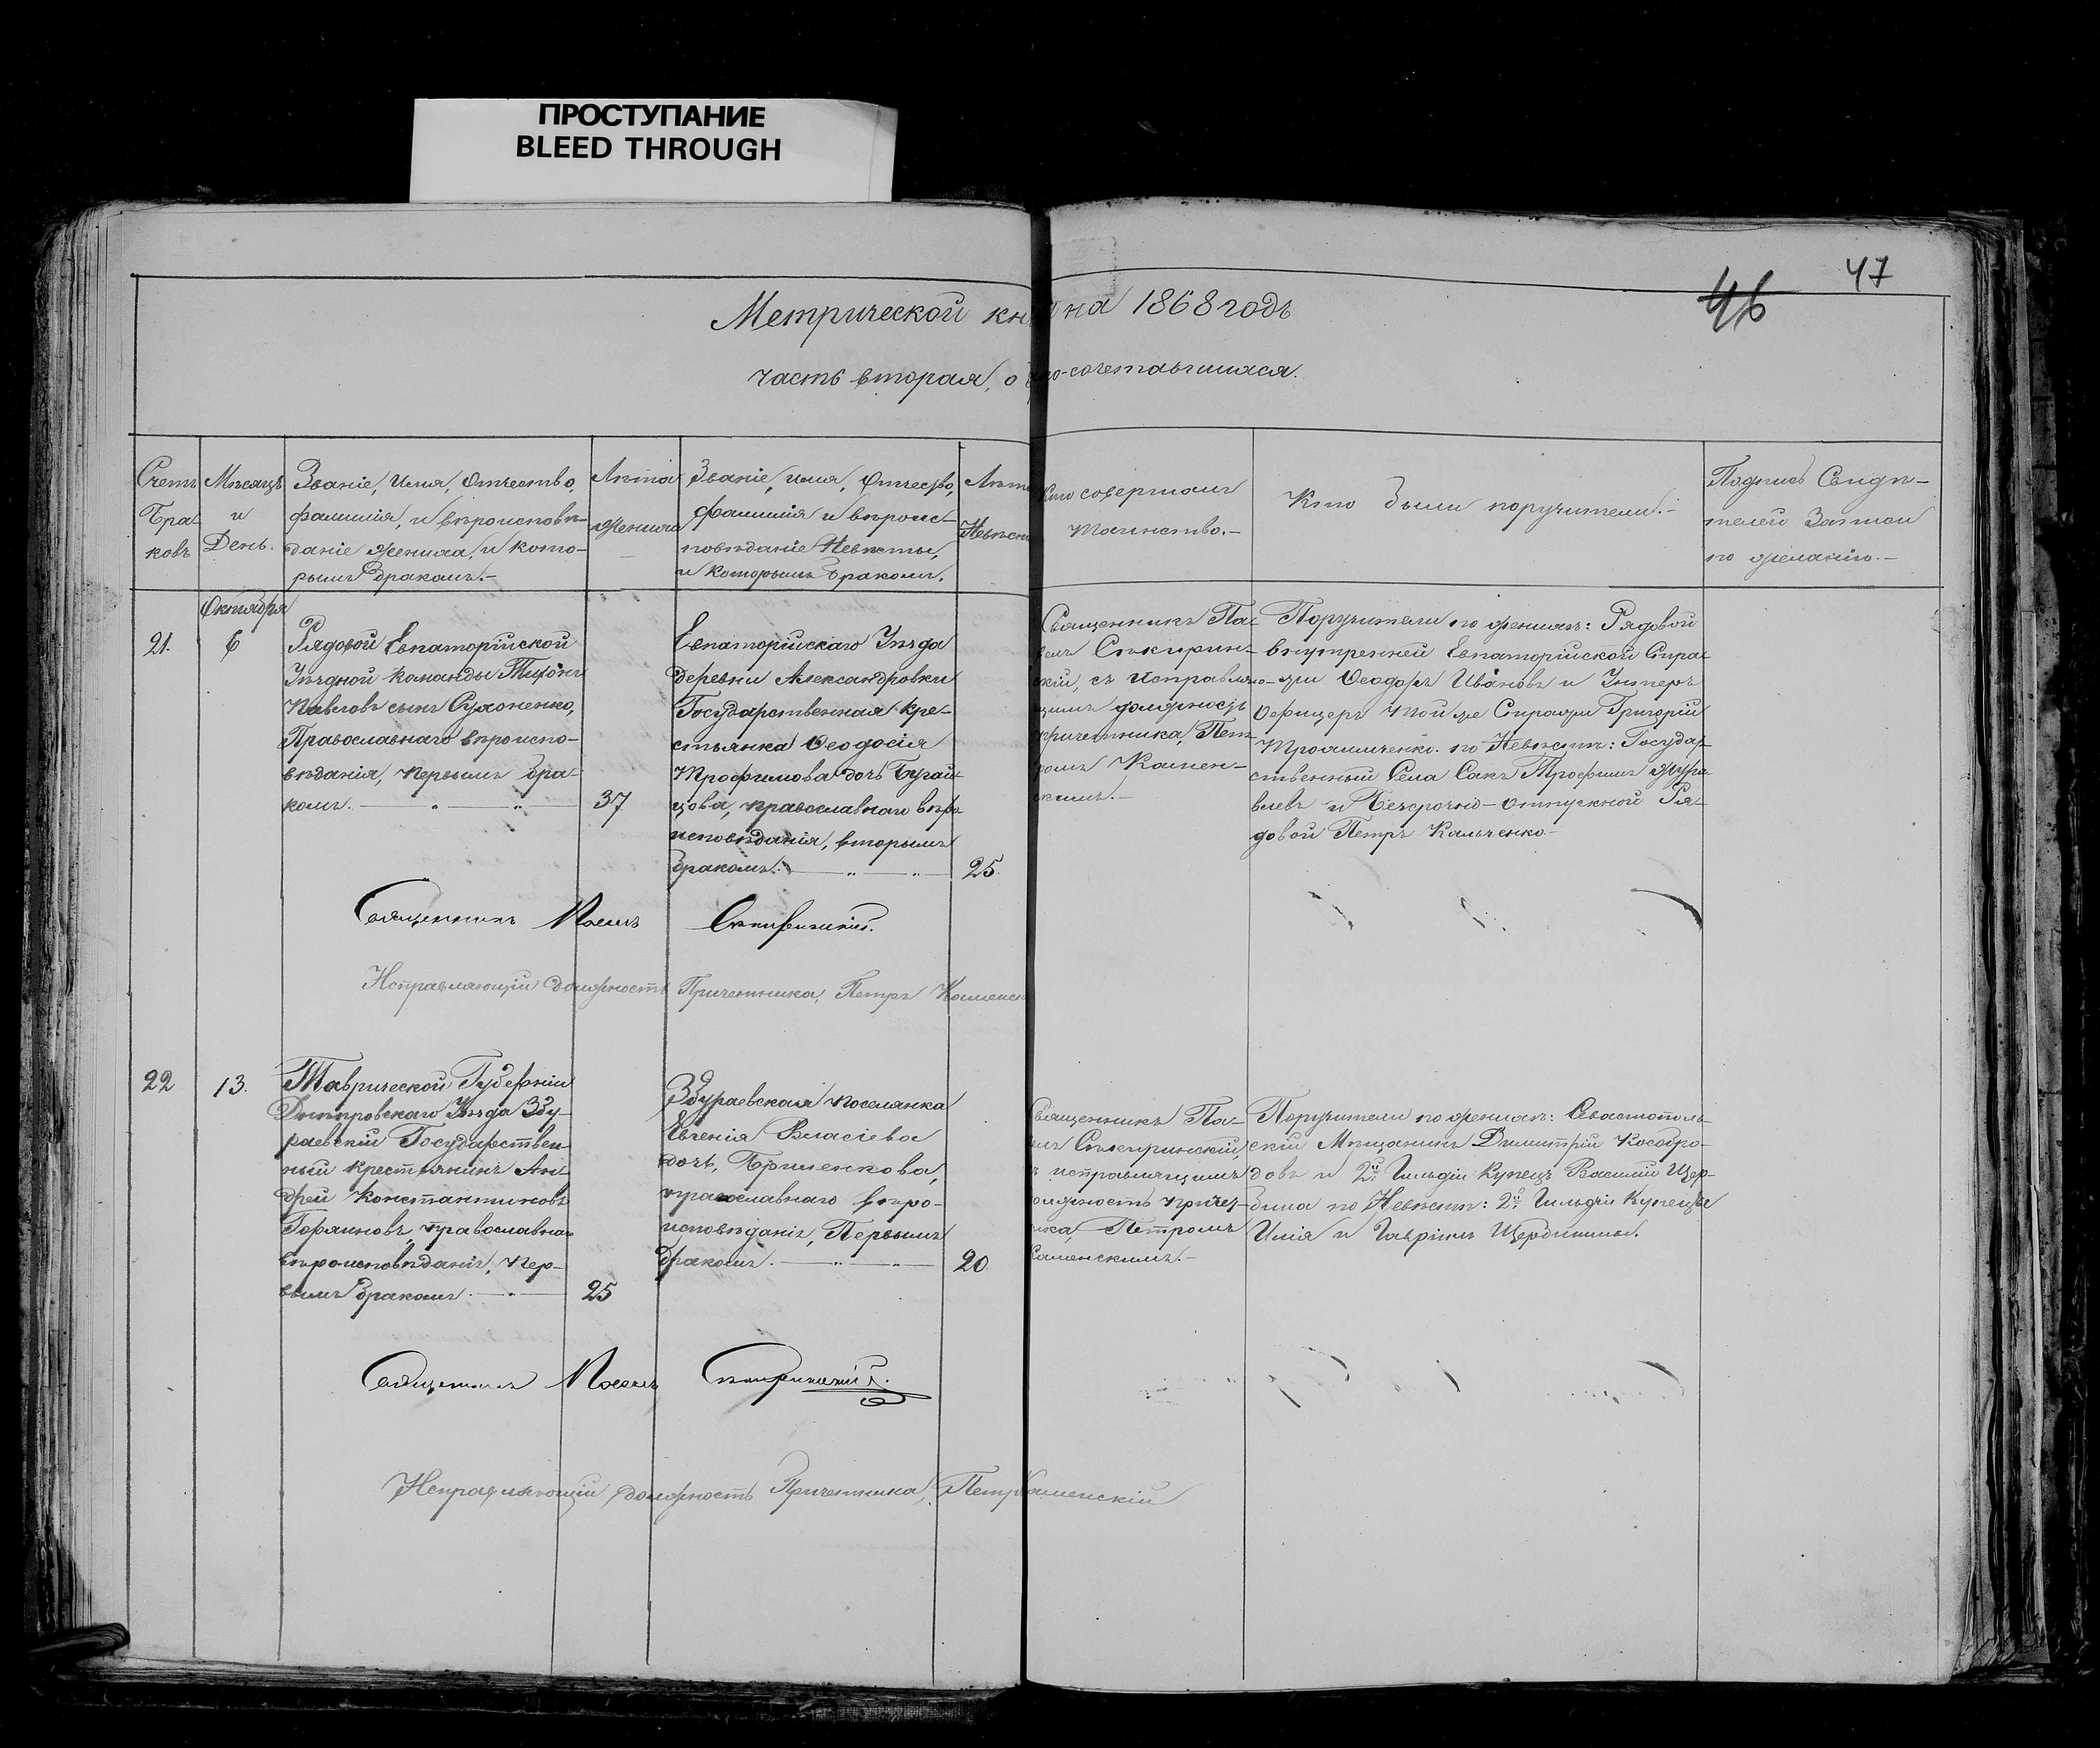 ПРОСТУПАНИЕ
BLEED THROUGH
47
46
Метрической кн на 1868 годъ
часть вторая, о бра-ко-сочетавшихся.
Счетъ
Бра-
ковъ
Мѣсяцъ
и
День.
Званіе, Имя, Отчество,
фамилія, и вѣроисповѣ-
даніе жениха, и кото-
рымъ бракомъ.-
Лѣта
жениха
Званіе, имя, Отчество,
фамилія и вѣроис-
повѣданіе Невѣсты,
и Которымъ бракомъ.
Лѣта
Невѣсты
Кто совершалъ
таинство.-
Кто были поручители.-
Подпись Свидѣ-
телей Записи
по желанію.-
Октября
21.
6
Рядовой Евпаторійской
Уѣздной Команды Тихонъ
Павловъ сынъ Сухоненко,
Православнаго вѣроиспо-
вѣданія, Первымъ бра-
комъ.
37
Евпаторійскаго Уѣзда
деревни Александровки
Государственная Кре-
стьянка Ѳеодосія
Трофимова дочь Бугай-
цова, православнаго вѣро-
исповѣданія, вторымъ
бракомъ.
25.
Священникъ Па-
велъ Сткирин-
скій, съ Исправляю-
щимъ должность
причетника, Пет-
ромъ Камен-
скимъ.-
Поручители по женихѣ: Рядовой
внутренней Евпаторійской Стра-
жи Ѳеодоръ Ивановъ и Унтеръ
Офицеръ той же Стражи Григорій
по Невѣстѣ: Государ-
ственный Села Сакъ Трофимъ Жура-
влевъ и Безсрочно-отпускной Ря-
довой Петръ Кальченко-
Священникъ Павелъ
Исправляющій должность Причетника, Петръ Каменск
22
13.
Таврической Губерніи
Днѣпровскаго Уѣзда Збу-
раевскій Государствен-
ный крестьянинъ Ан-
дрей Константиновъ
Горяиновъ, православна-
вѣроисповѣданія, Пер-
вымъ бракомъ.
25
Збураевская поселянка
Евгенія Власіева
дочь, Бриченкова,
православнаго вѣро-
исповѣданія, Первымъ
бракомъ.
20.
Священникъ Па-
исправляющимъ
должность причет-
ника, Петромъ
Каменскимъ.-
Поручители по женихѣ: Севастополь-
скій Мѣщанинъ Димитрій Кособро-
довъ и 2й Гильдіи Купецъ Василій Щер-
бина по Невѣстѣ: 2й Гильдіи Купецъ
Илія и Гавріилъ Щербинины.
Священникъ Павелъ
Исправляющій должность Причетника, Петръ Каменскій